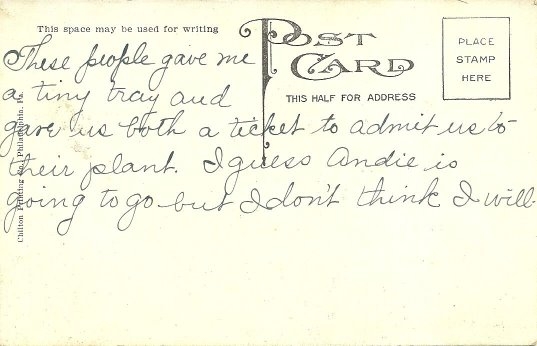 This space may be used for writing
POST CARD
THIS HALF FOR ADDRESS
PLACE
STAMP
HERE
These people gave me
a tiny tray and
gave us both a ticket to admit us to
their plant. I guess Andie is
going to go but I don't think I will.
Chilton Printing Co., Philadelphia, Pa.